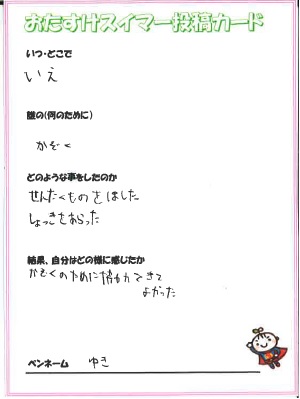 おたすけスイマー投稿カード
いつ・どこで
いえ
誰の(何のために)
かぞく
どのような事をしたのか
せんたくものをほした
しょっきをあらった
結果、自分はどの様に感じたか
かぞくのために協力できて
よかった
ペンネーム ゆき